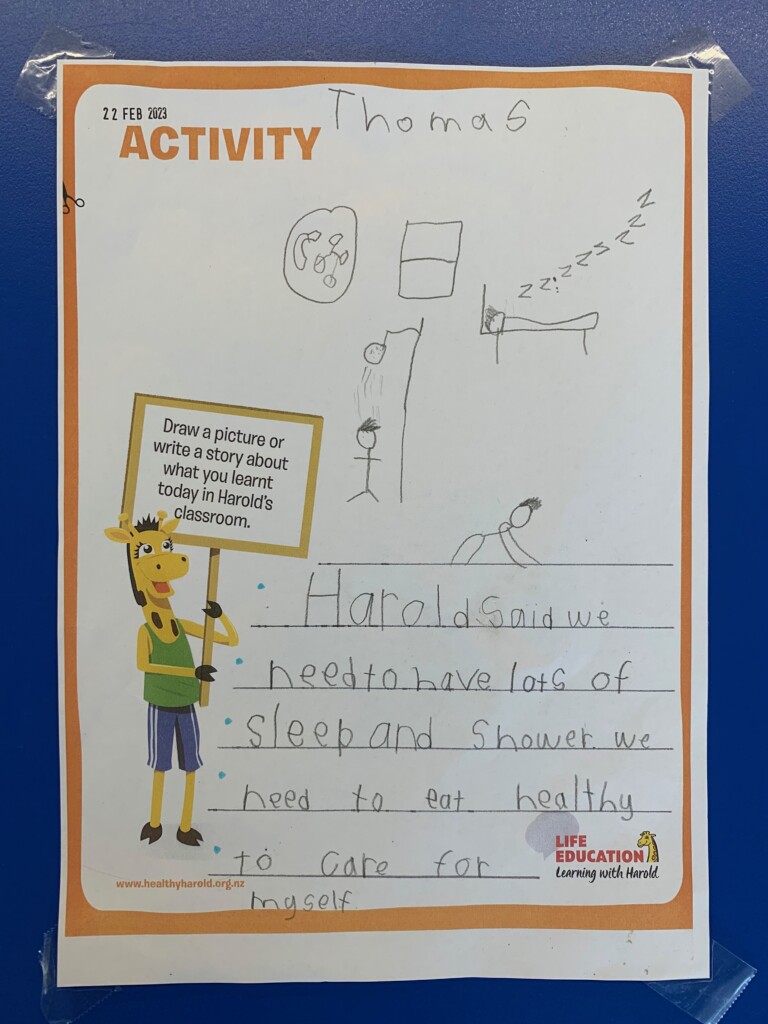 22 FEB 2023
Thomas
ACTIVITY
zzzzzszzz
Draw a picture or
write a story about
what you learnt
today in Harold's
classroom.
Harold said we
need to have lots of
sleep and shower we
need to eat healthy
to care for
myself
LIFE
EDUCATION
Learning with Harold
www.healthyharold.org.nz